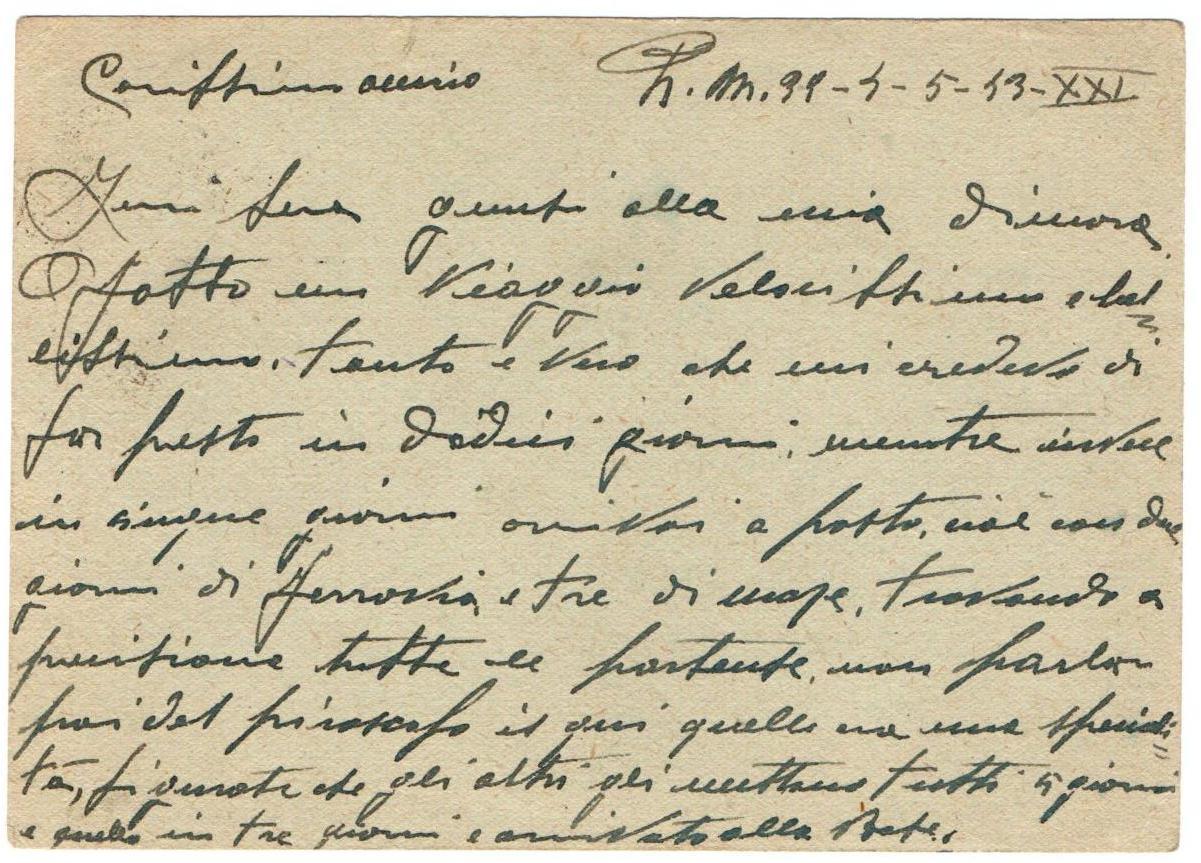 Carissimo amico P.M. 99-4-5-43-XXI
Ieri sera giunsi alla mia dimora.
O fatto un viaggio velocissimo e bel
lissimo, tanto e vero che mi credevo di
far presto in dodici giorni, mentre invece
in cinque giorni arrivai a posto, cioè con due
giorni di ferrovia, e tre di mare, trovando a
puntino tutte le partenze, non parlar
poi del piroscafo il qui quello era una spendi
ta, figurate che gli altri gli mettano tutti 5 giorni
e quello in tre giorni e arrivato alla Base.